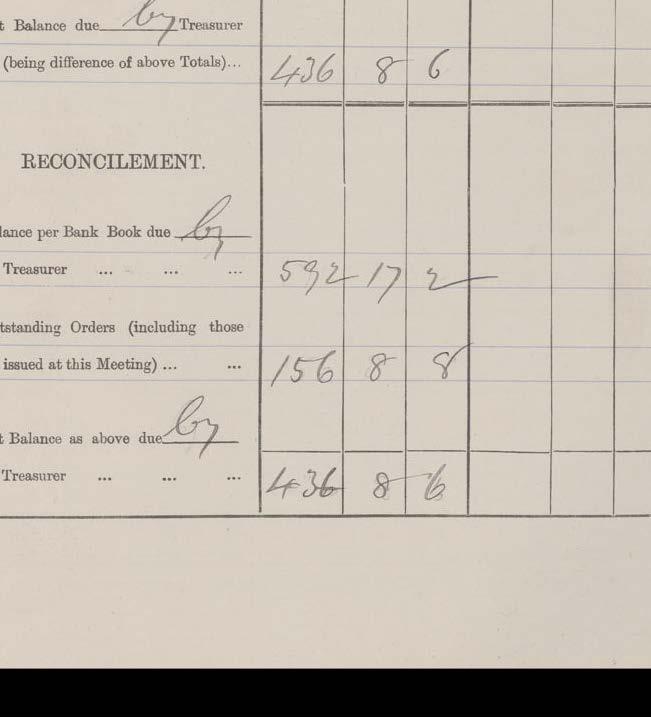 t Balance due by Treasurer
(being difference of above Totals)... 436 8 6
RECONCILEMENT.
lance per Bank Book due by
Treasurer ... ... ... 592 17 2
tstanding Orders (including those
issued at this Meeting) ... ... 156 8 8
t Balance as above due by
Treasurer ... ... ... 436 8 6